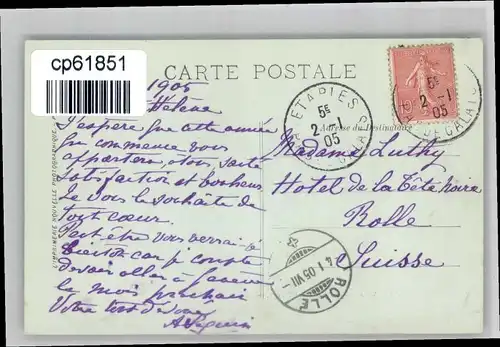 cp61851
CARTE POSTALE
1905
Hélène
J'espère que cette année
qui commence vous
apportera, à tous, santé
satisfaction et bonheur
Je vous le souhaite de
tout cœur.
Peut être vous verrai-je
bientôt car je compte
devoir aller à Genève
le mois prochain
Votre tout dévoué
Adresse du Destinataire
Madame Luthy
Hotel de la Tête Noire
Rolle
Suisse
ETAPLES
5E
2 -1
05
PAS-DE-CALAIS
5E
2 -1
05
PAS-DE-CALAIS
4.I.05.VII-
ROLLE
IMPRIMERIE NOUVELLE PHOTOGRAPHIQUE